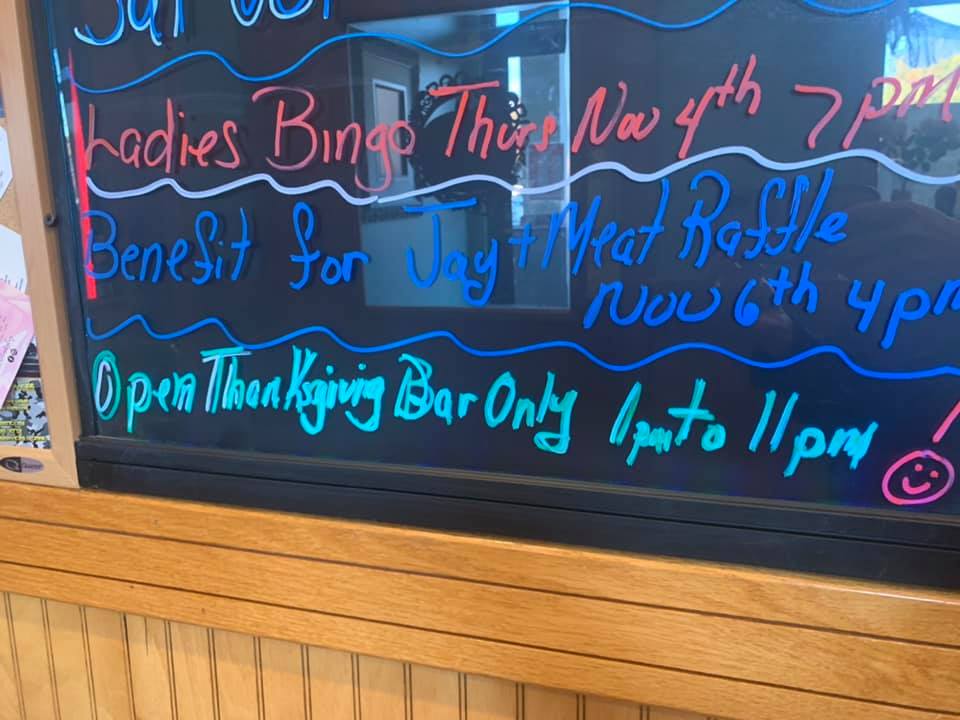 Ladies Bingo Thurs Nov 4th 7pm
Benefit for Jay + Meat Raffle
Nov 6th 4pm
Open Thanksgiving Bar Only 1pm to 11pm